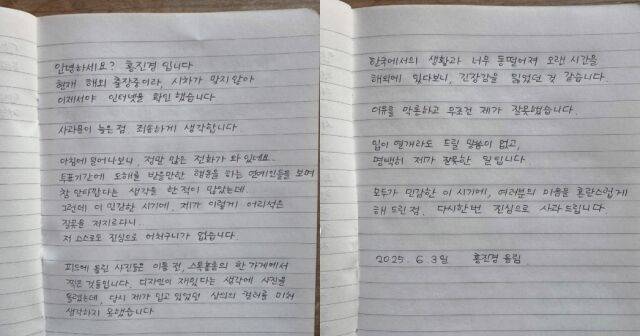 안녕하세요? 홍진경 입니다
현재 해외 출장중이라, 시차가 맞지 않아
이제서야 인터넷을 확인 했습니다
사과문이 늦은점 죄송하게 생각합니다
아침에 일어나보니, 정말 많은 전화가 와 있네요..
투표기간에 오해를 받을만한 행동을 하는 연예인들을 보며
참 안타깝다는 생각을 한적이 많았는데
그런데 이 민감한 시기에, 제가 이렇게 어리석은
잘못을 저지르다니..
저 스스로도 진심으로 어처구니가 없습니다.
피드에 올린 사진들은 이틀 전, 스톡홀름의 한 가게에서
찍은 것들입니다. 디자인이 재밌다는 생각에 사진을
올렸는데, 당시 제가 입고 있었던 상의의 컬러를 미처
생각하지 못했습니다
한국에서의 생활과 너무 동떨어져 오랜 시간을
해외에 있다보니, 긴장감을 잃었던 것 같습니다.
이유를 막론하고 무조건 제가 잘못했습니다.
입이 열개라도 드릴 말씀이 없고,
명백히 제가 잘못한 일입니다.
모두가 민감한 이 시기에, 여러분의 마음을 혼란스럽게
해 드린 점. 다시한번 진심으로 사과드립니다.
2025. 6. 3일 홍진경 올림